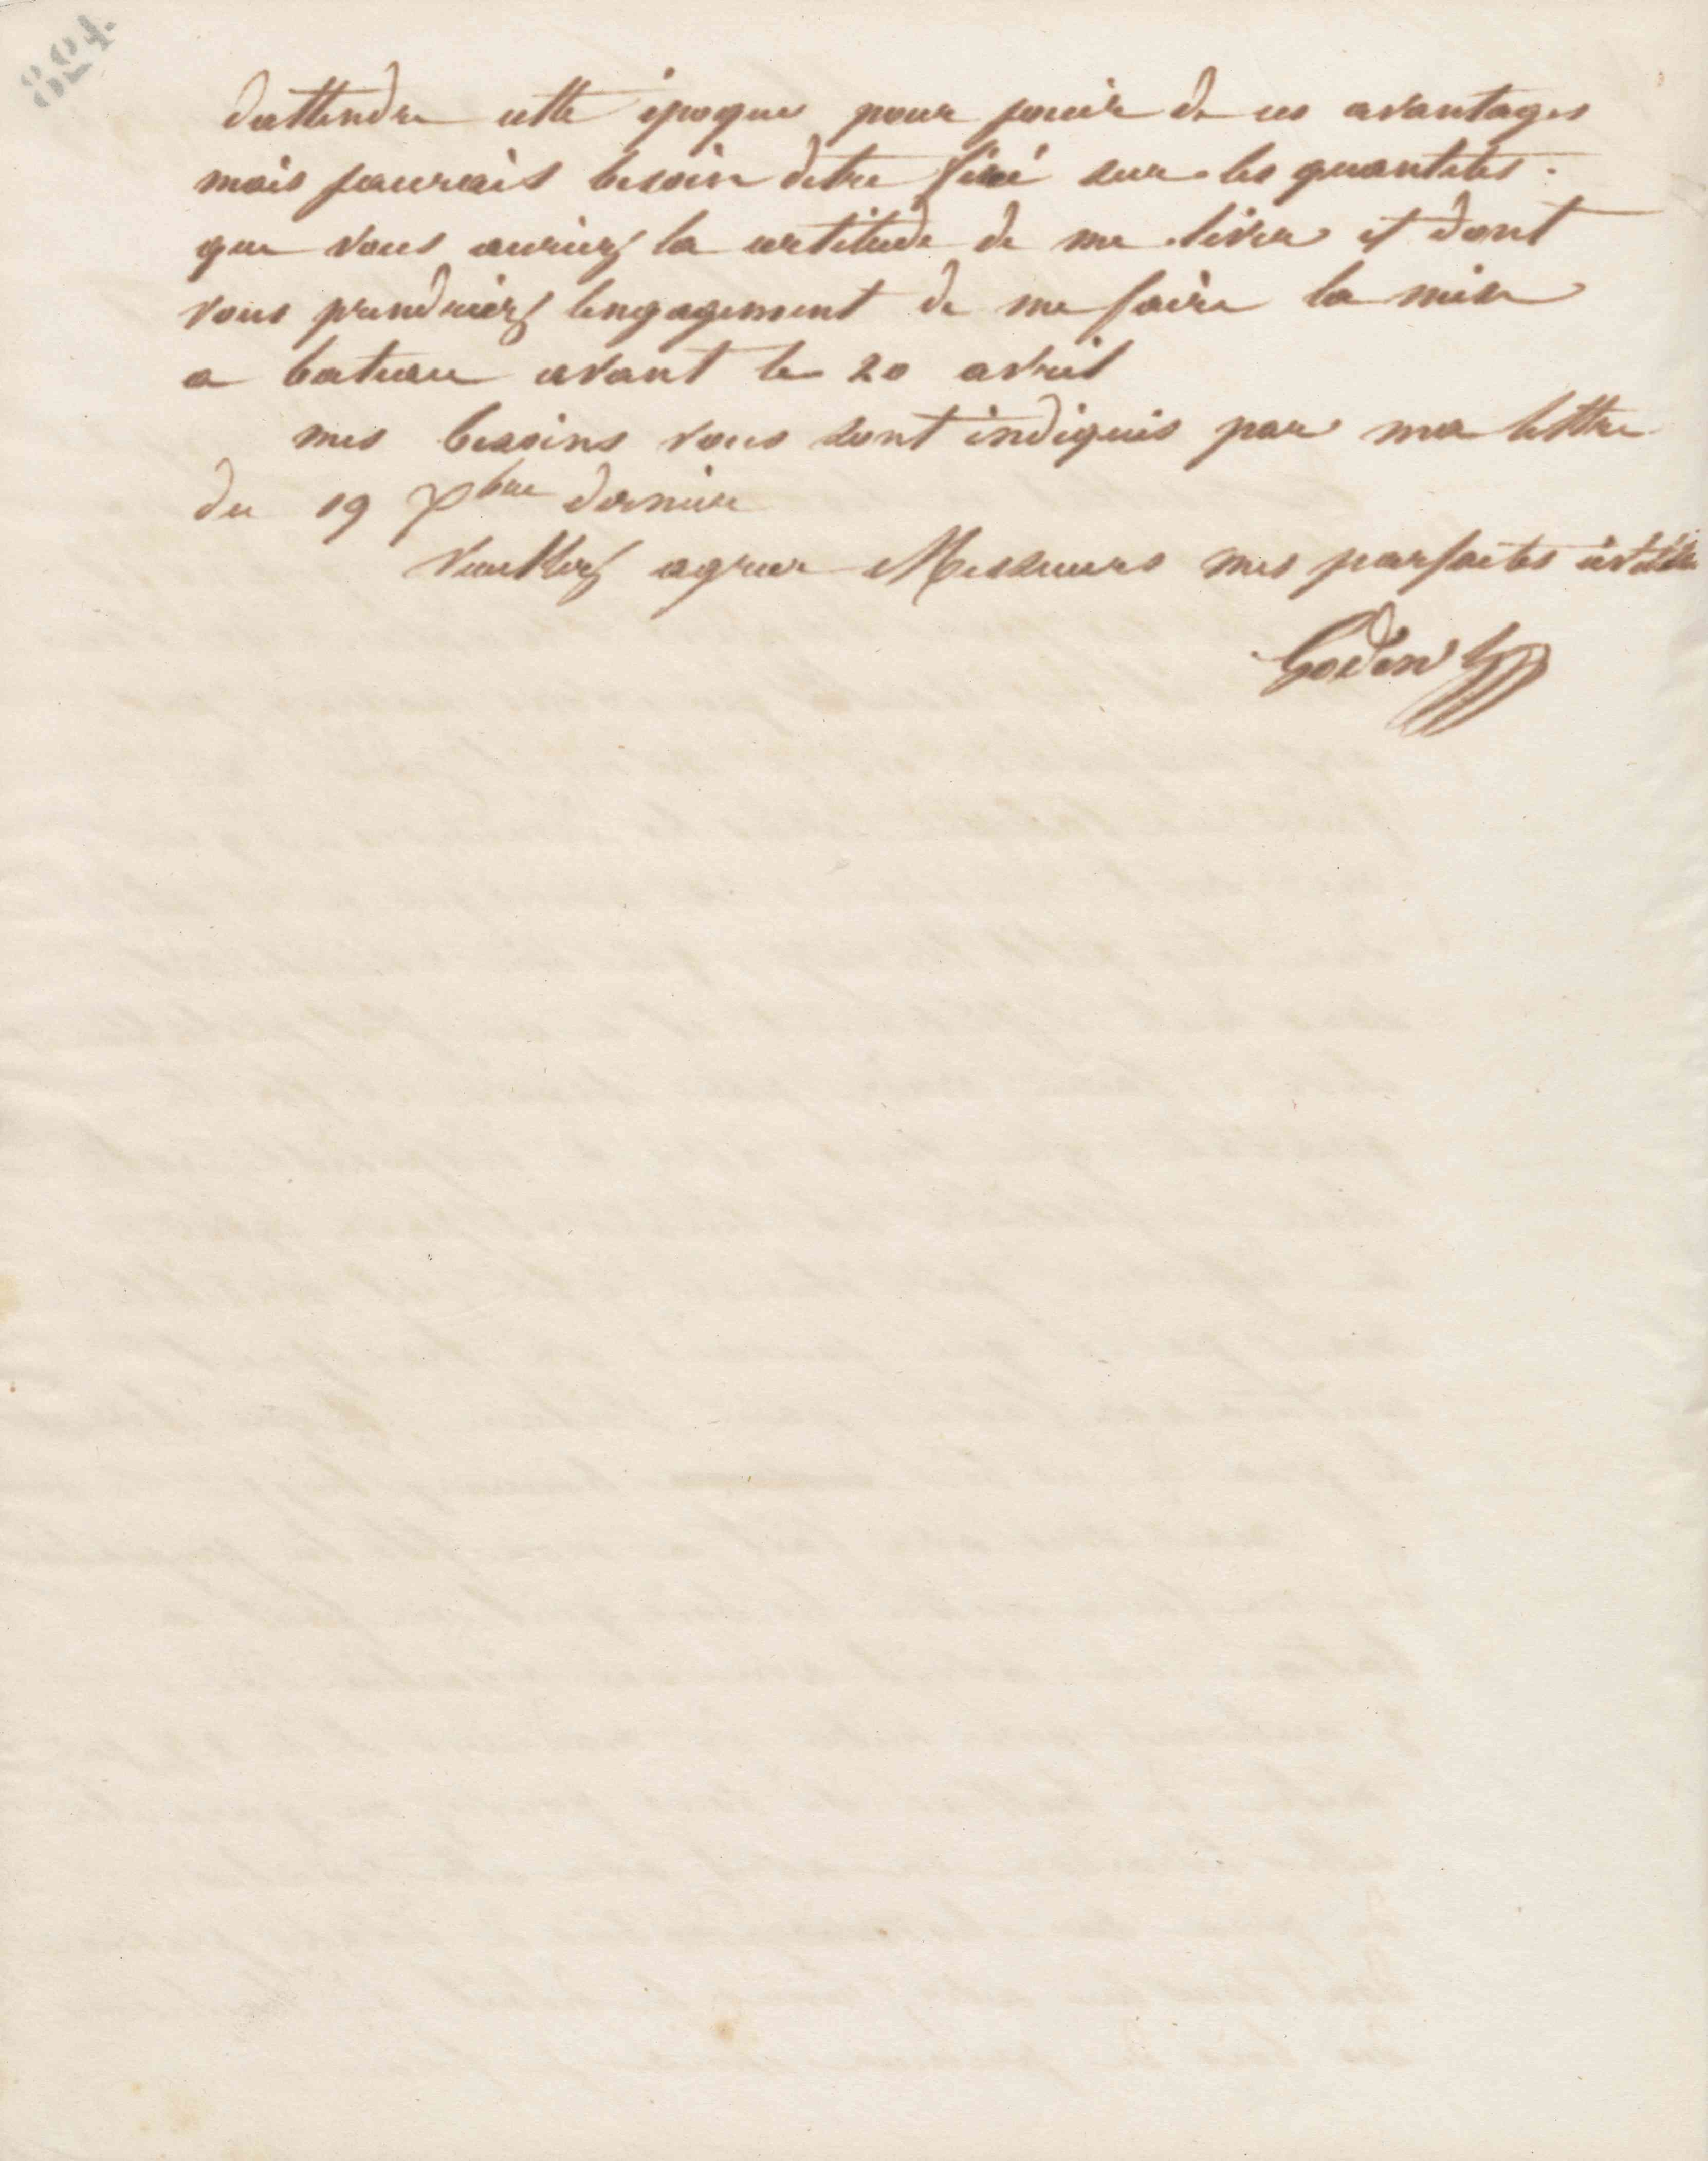 824
dattendre cette époque pour jouir de ces avantages
mais jaurais besoin detre fixé sur les quantites
que vous auriez la certitude de me livrer et dont
vous prendriez lengagement de me faire la mise
a bateau avant le 20 avril
mes besoins vous sont indiqués par ma lettre
du 19 Xbre dernier
Veuillez agreer Messieurs mes parfaites
Godin